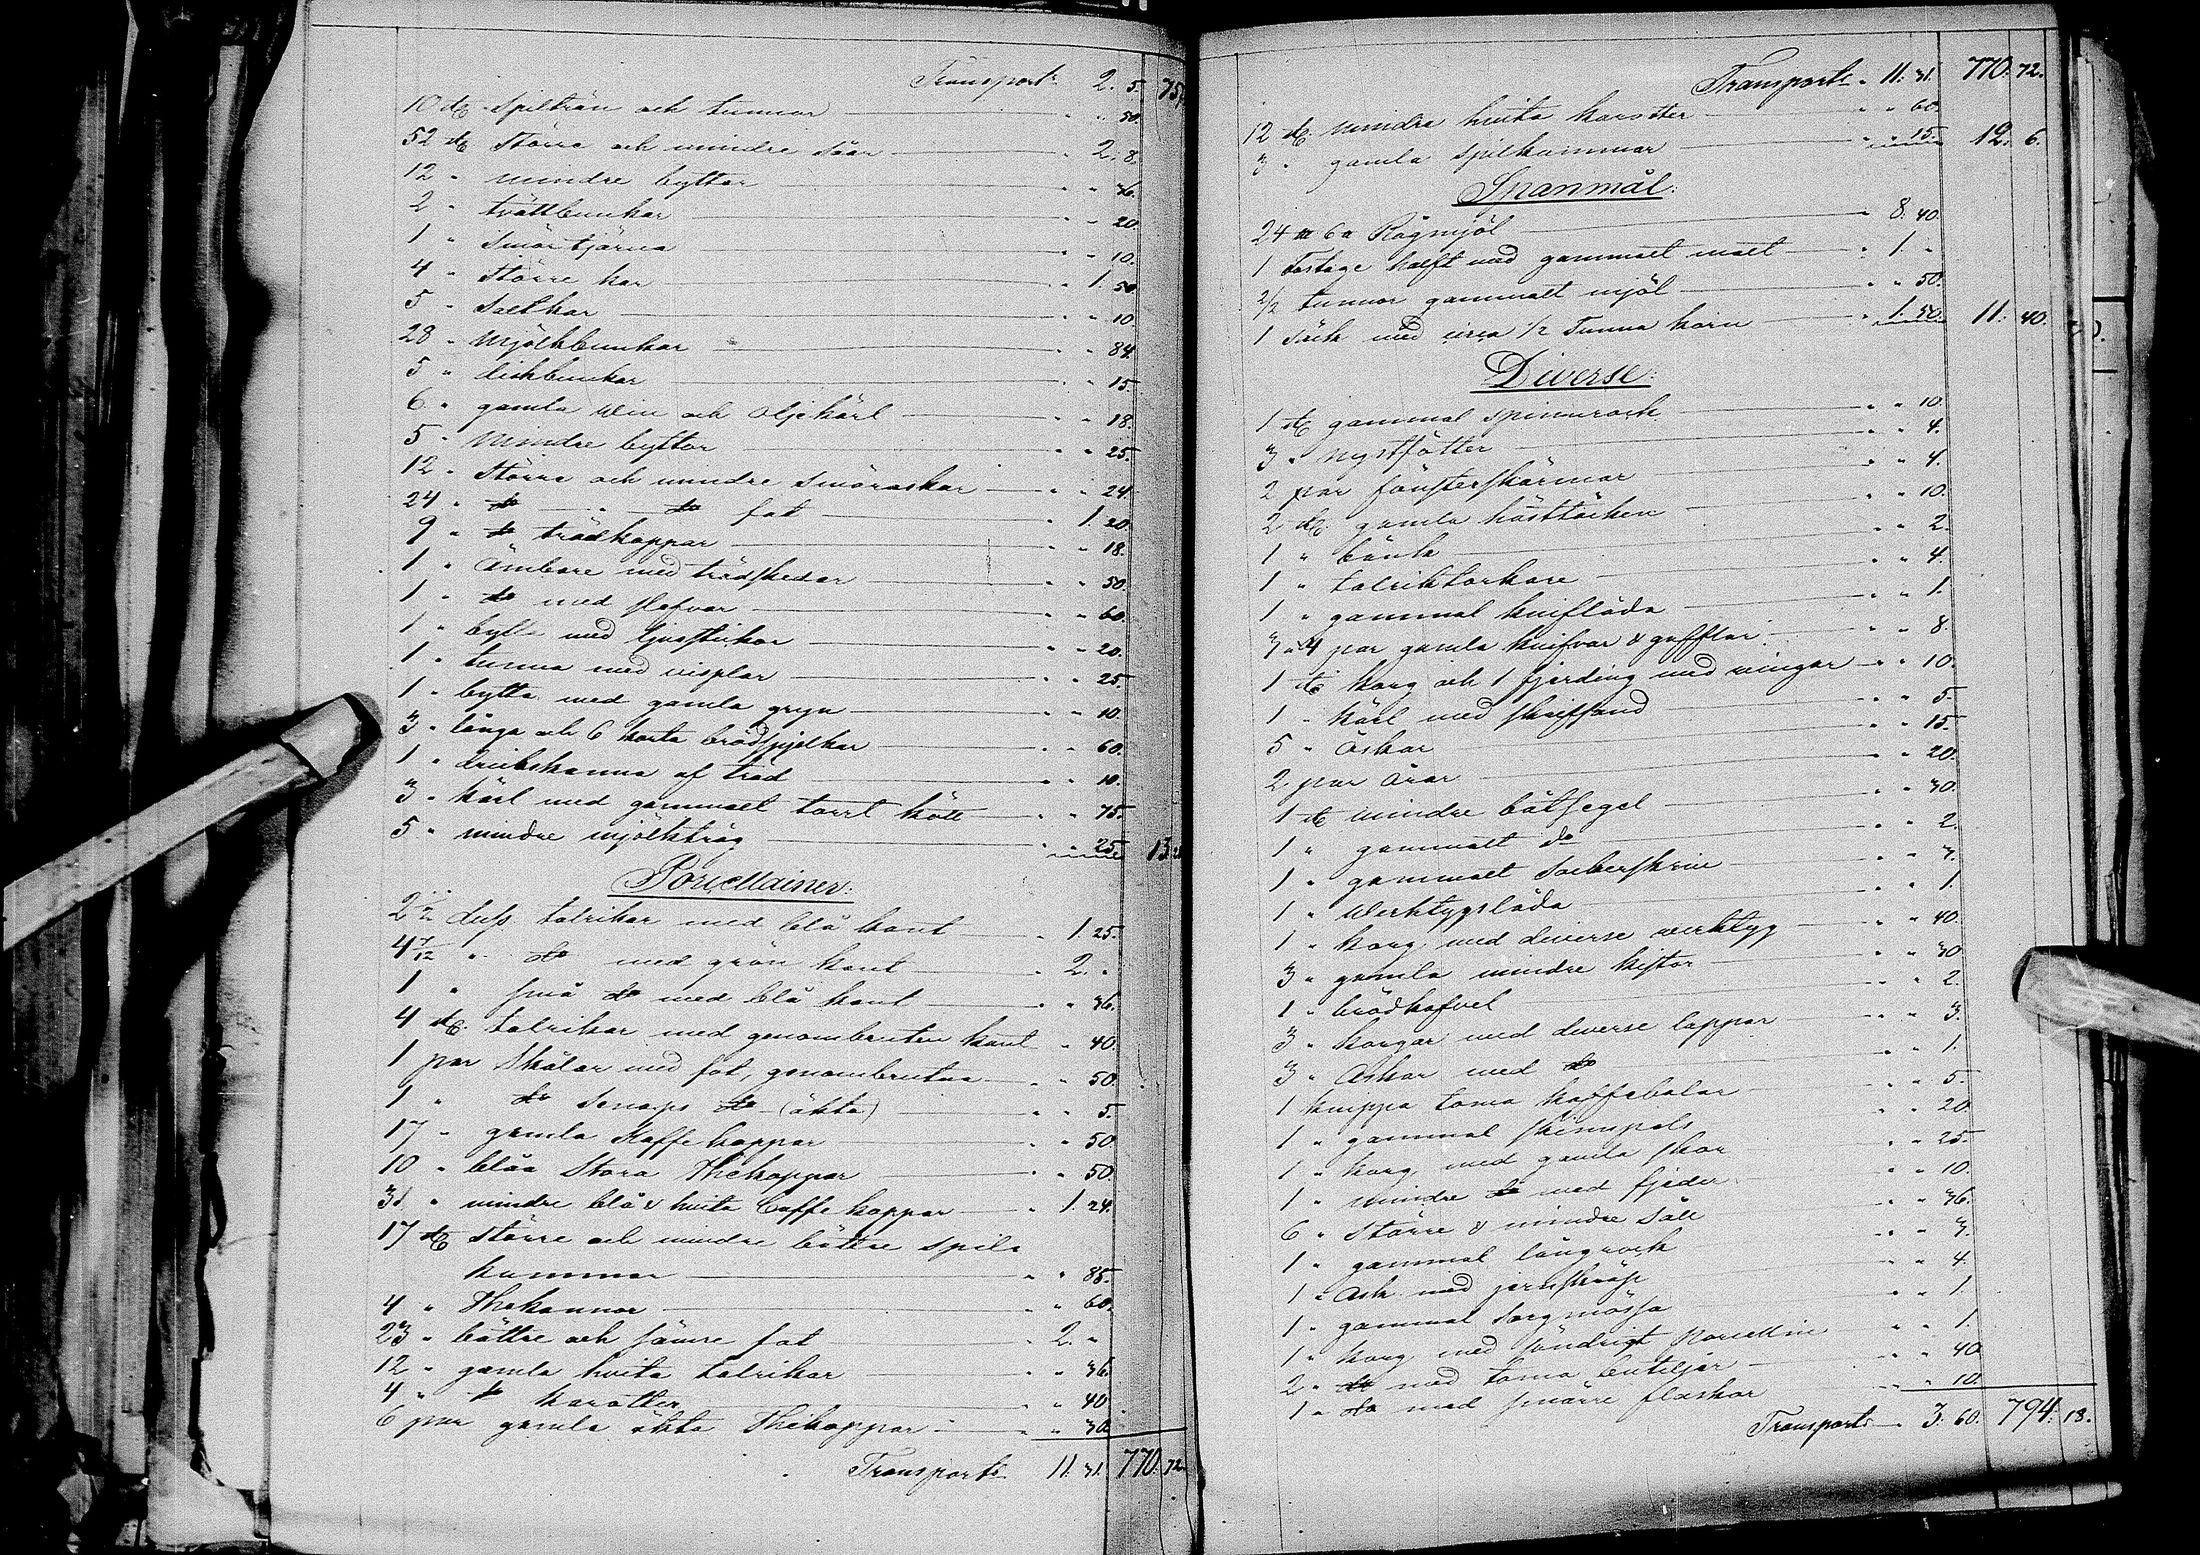 Transport 2. 5. 757
10 st. spiltrån och tunnor " " 50.
52 st. större och mindre såar " 2. 8.
12 " mindre byttor " " 36.
2 " tvättbunkar " " 20.
1 " smörtjärna " " 10.
4 " större kar " 1. 50.
5 " saltkar " " 10.
28 " mjölkbunkar " " 84.
5 " diskbunkar " " 15.
6 " gamla win och oljekärl " " 18.
5 " mindre byttor " " 25.
12 " större och mindre smöraskar " " 24.
24 " do " do fat " 1. 20.
9 " do trädkoppar " " 18.
1 " Ämbare med trädskedar " " 50.
1 " do med slefvar " " 60.
1 " bytta med ljusstickor " " 20.
1 " tunna med visplar " " 25.
1 " bytta med gamla gryn " " 10.
3 " långa och 6 korta brödspjelkar " " 60.
1 " drickskanna af träd " " 10.
3 " kärl med gammalt torrt kött " " 75.
5 " mindre mjölktråg " " 25. 13.
Porcellainer:
2 1/2 duss. talrikar med blå kant " 1. 25.
4 7/12 " do med grön kant " 2. "
1 " små do med blå kant " " 36.
4 st. talrikar med genombruten kant " 40.
1 par skålar med fat, genombrutna " " 50.
1 " do senaps do (äkta) " " 5.
17 " gamla Kaffe koppar " " 50.
10 " blåa stora Thékoppar " " 50.
31 " mindre blå & hvita Caffe koppar " 1. 24.
17 st. större och mindre bättre spil-
kummar " " 85.
4 " Thekannor " " 60.
23 " bättre och sämre fat " 2. "
12 " gamla hvita talrikar " " 36.
4 " do karotter " " 40.
6 par gamla äkta Thékoppar " " 30.
Transport 11. 31. 770. 72.
Transport " 11. 31. 770. 72.
12 st. mindre hvita karotter " " 60.
3 " gamla spilkummar " " 15. 12. 6.
Spanmål:
24 6 a Rågmjöl " 8. 40.
1 Fastage halft med gammalt malt " 1. "
2/2 tunnor gammalt mjöl " " 50.
1 Säck med circa 1/2 Tunna korn " 1. 50. 11. 40.
Diverse:
1 st. gammal spinnrock " " 10.
3 " nystfötter " " 4.
2 par fönsterskärmar " " 4.
2 st. gamla hästtäcken " " 10.
1 " bänk " " 2.
1 " talriktorkare " " 4.
1 " gammal kniflåda " " 1.
3 à 4 par gamla knifvar & gafflar " " 8.
1 st. korg och 1 fjerding med vingar " " 10.
1 " kärl med skursand " " 5.
5 " Äskar " " 15.
2 par åror " " 20.
1 st. mindre båtsegel " " 30.
1 " gammalt do " " 2.
1 " gammalt sockerskrin " " 3.
1 " Werktygslåda " " 1.
1 " korg med diverse verktyg " " 40.
3 " gamla mindre kistor " " 30.
1 " brödkafvel " " 2.
3 " korgar med diverse lappar " " 3.
3 " Askar med do " " 1.
1 knippa toma kaffebalar " " 5.
1 " gammal skinnpels " " 20.
1 " korg med gamla skor " " 25.
1 " mindre do med fjeder " " 10.
6 " större & mindre såll " " 36.
1 " gammal långrock " " 3.
1 " Ask med jernskräp " " 4.
1 " gammal sorgmössa " " 1.
1 " korg med söndrigt Porcellin " " 1.
2 " do med toma buteljer " " 40.
1 " do med smärre flaskor " " 10.
Transport " 3. 60. 794. 18.